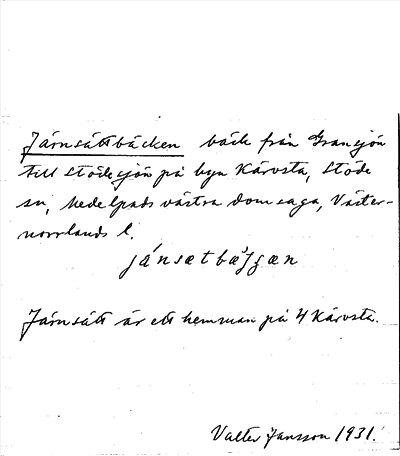 Järnsättbäcken bäck från Gransjön
till Stödesjön på byn Kärvsta, Stöde
sn, Medelpads västra domsaga, Väster-
norrlands l.
jánsætbæ̀ʃʃæn
Järnsätt är ett hemman på 4 Kärvsta.
Valter Jansson 1931.